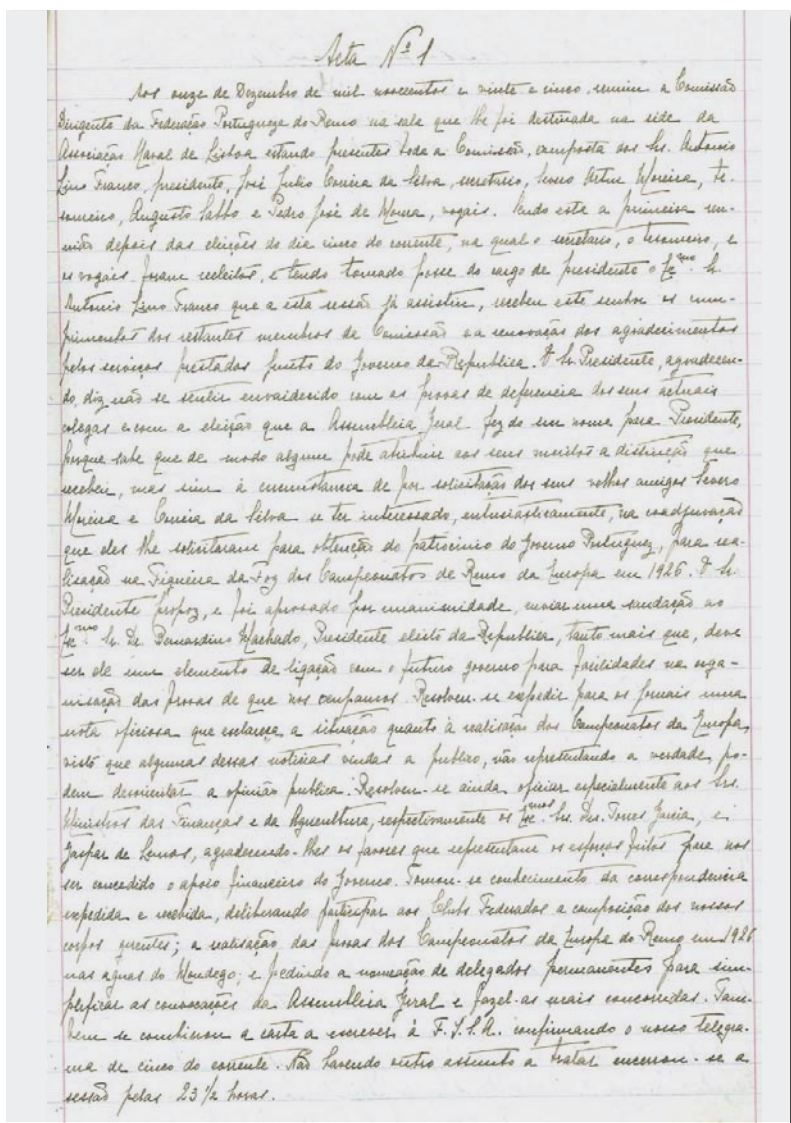 Acta Nº 1
Aos onze de Dezembro de mil novecentos e vinte e cinco, reuniu a Comissão
Dirigente da Federação Portugueza do Remo na sala que lhe foi destinada na séde da
Associação Naval de Lisboa estando presentes toda a Comissão, composta dos Sr. Antonio
Lino Franco, presidente, José Julio Correia da Silva, secretario, Severo Artur Moreira, te-
soureiro, Augusto Sabbo e Pedro José de Moura, vogais. Sendo esta a primeira reu-
nião depois das eleições do dia cinco do corrente, na qual o secretario, o tesoureiro, e
os vogais foram reeleitos, e tendo tomado posse do cargo de presidente o Exmo. Sr.
Antonio Lino Franco que a esta sessão já assistiu, recebeu este senhor os cum-
primentos dos restantes membros da Comissão e a renovação dos agradecimentos
pelos serviços prestados junto do Governo da Republica. O Sr. Presidente, agradecen-
do, diz não se sentir envaidecido com as provas de deferencia dos seus actuais
colegas e com a eleição que a Assembleia Geral fez do seu nome para Presidente,
porque sabe que de modo algum pode atribuir aos seus meritos a distincção que
recebeu, mas sim á circumstancia de por solicitação dos seus velhos amigos Severo
Moreira e Correia da Silva se ter interessado, entusiasticamente, na coadjuvação
que eles lhe solicitaram para obtenção do patrocinio do Governo Portuguez, para rea-
lisação na Figueira da Foz dos Campeonatos de Remo da Europa em 1926. O Sr.
Presidente propoz, e foi aprovado por unanimidade, enviar uma saudação ao
Exmo. Sr. Dr. Bernardino Machado, Presidente eleito da Republica, tanto mais que, deve
ser ele um elemento de ligação com o futuro governo para facilidades na orga-
nisação das provas de que nos ocupamos. Resolveu-se expedir para os jornais uma
nota oficiosa que esclareça a situação quanto à realisação dos Campeonatos da Europa,
visto que algumas dessas noticias vindas a publico, não representando a verdade, po-
dem desorientar a opinião publica. Resolveu-se ainda oficiar especialmente aos Srs.
Ministros das Finanças e da Agricultura, respectivamente os Exmos. Srs. Drs. Torres Garcia, e
Gaspar de Lemos, agradecendo-lhes os favores que representam os esforços feitos para nos
ser concedido o apoio financeiro do Governo. Tomou-se conhecimento da correspondencia
expedida e recebida, deliberando participar aos Clubs Federados a composição dos nossos
corpos gerentes; a realisação das provas dos Campeonatos da Europa do Remo em 1926
nas aguas do Mondego; e pedindo a nomeação de delegados permanentes para sim-
plificar as convocações da Assembleia Geral e fazel-as mais concorridas. Tam-
bem se combinou a carta a escrever á F.I.S.A. confirmando o nosso telegra-
ma de cinco do corrente. Não havendo outro assunto a tratar encerrou-se a
sessão pelas 23 1/2 horas.